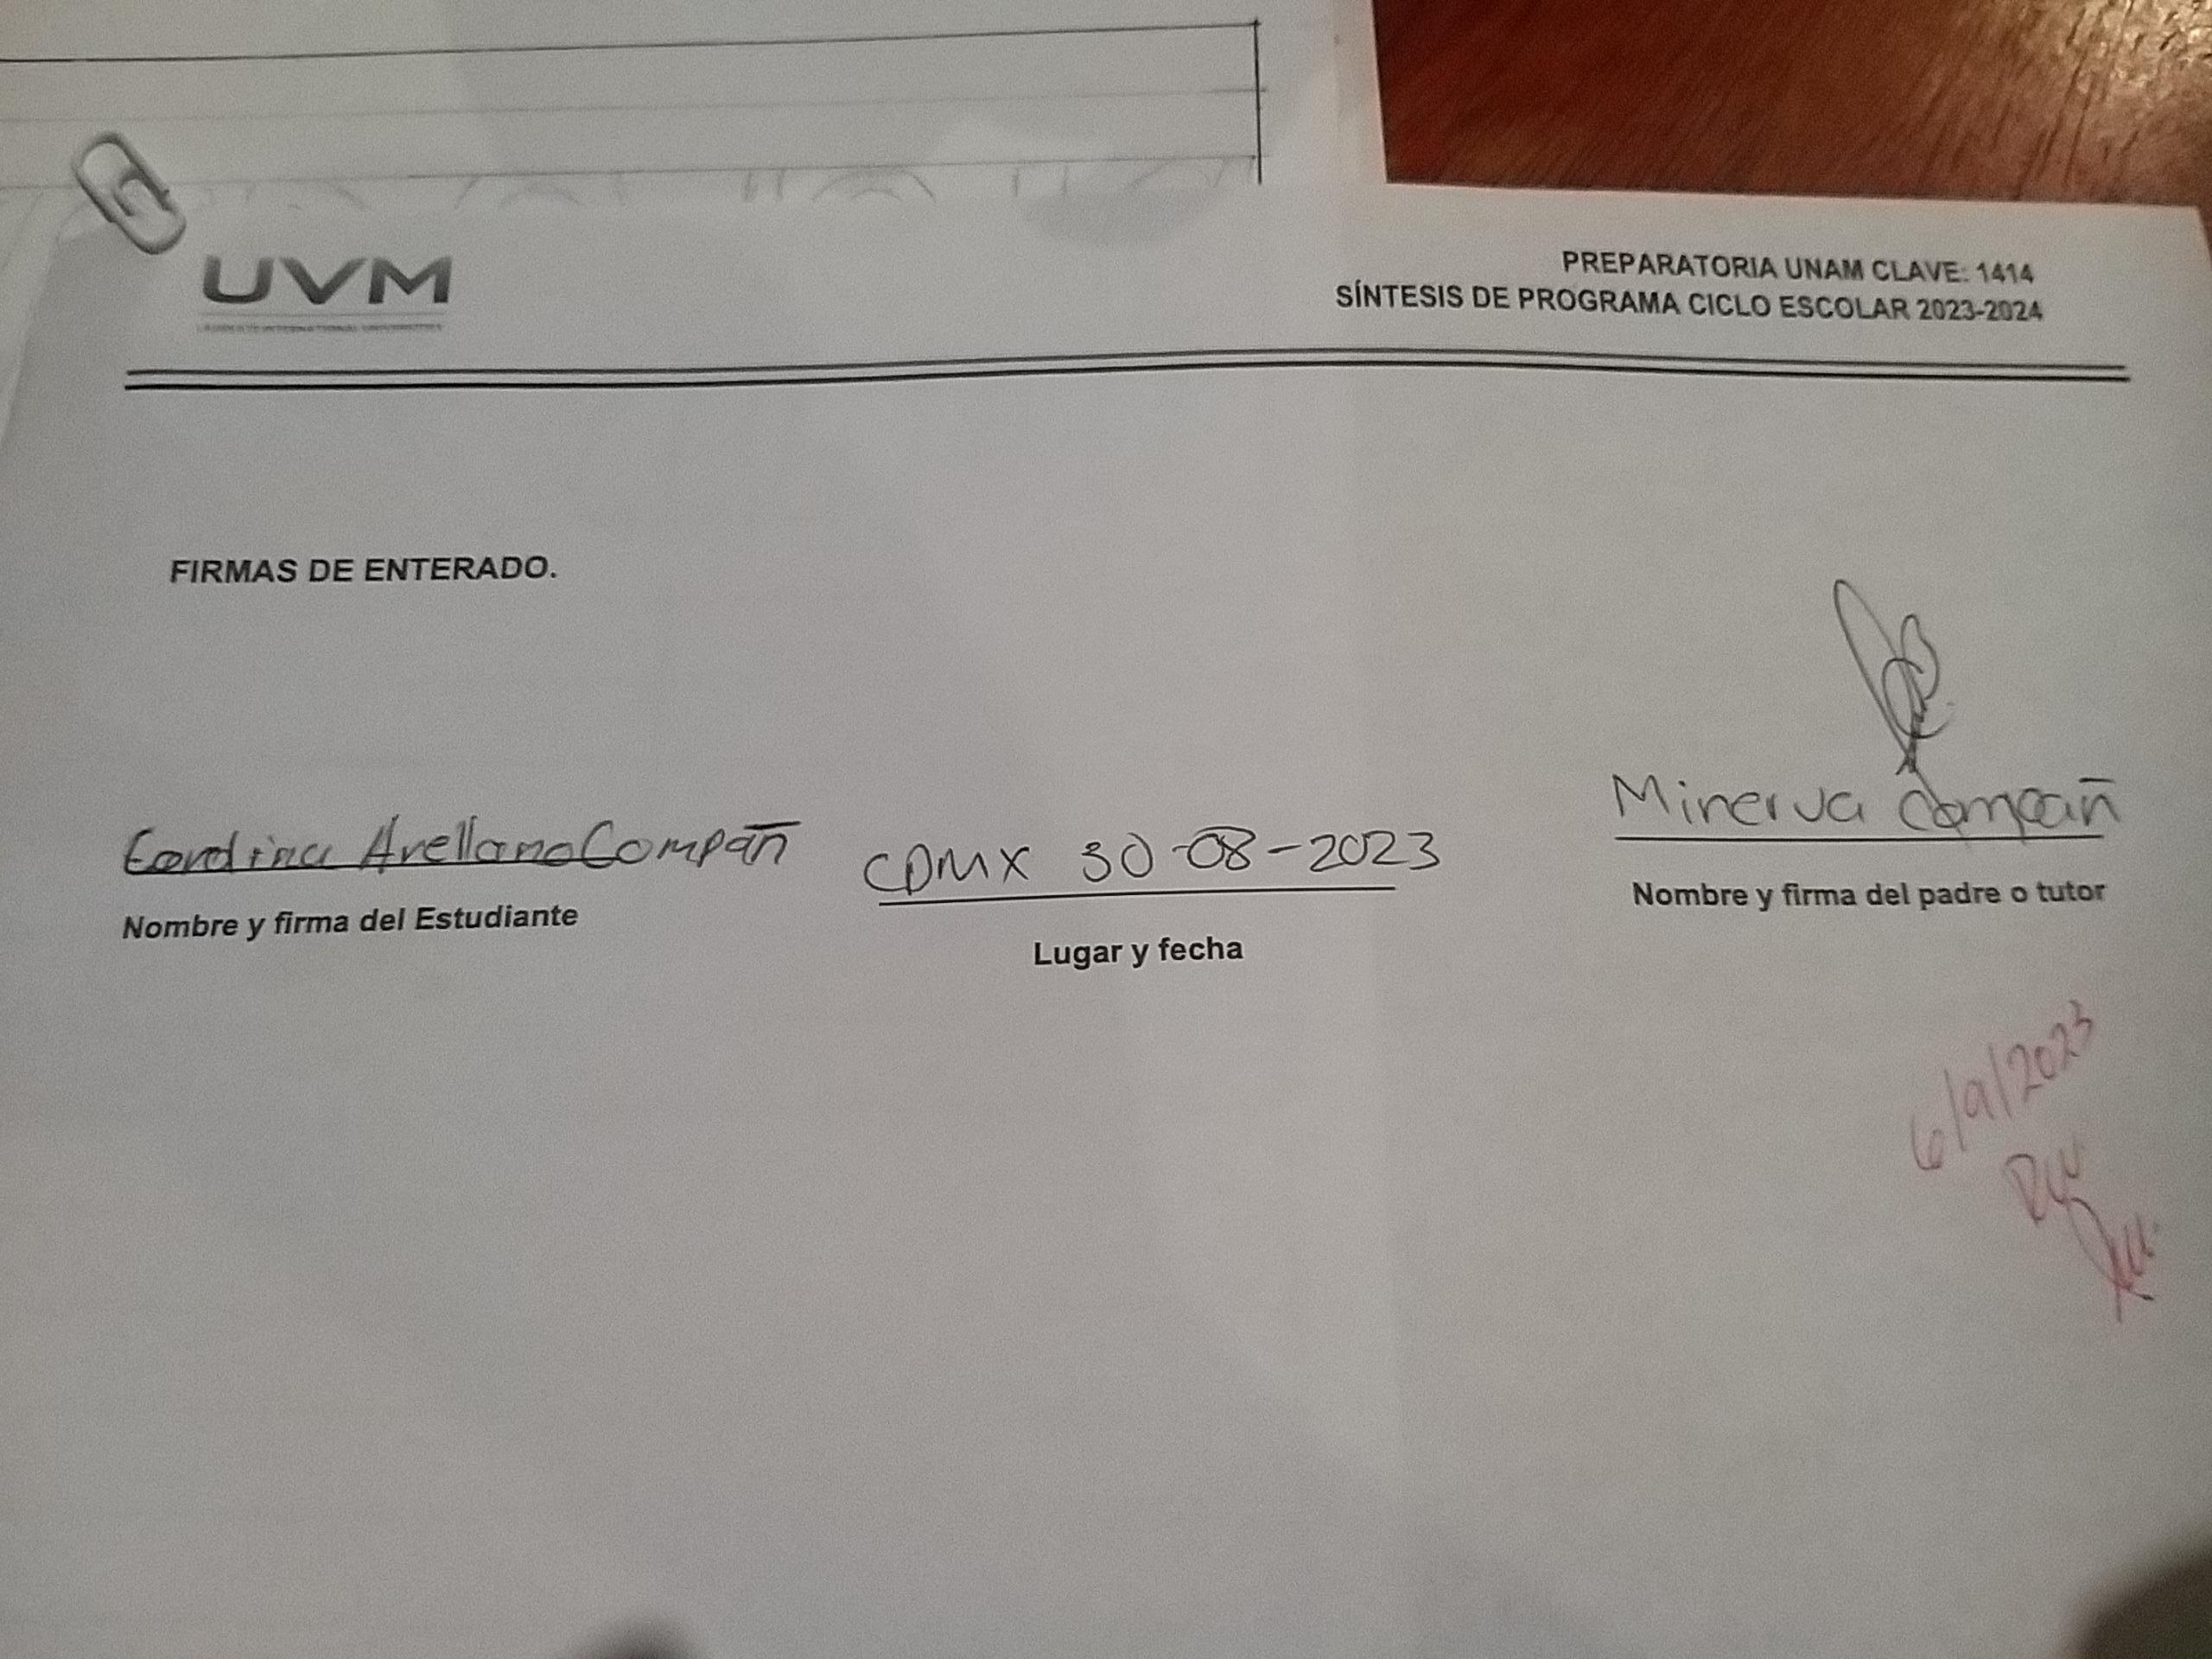 UVM
LAUREATE INTERNATIONAL UNIVERSITIES
PREPARATORIA UNAM CLAVE: 1414
SÍNTESIS DE PROGRAMA CICLO ESCOLAR 2023-2024
FIRMAS DE ENTERADO.
Arellano Compañ
Nombre y firma del Estudiante
CDMX 30-08-2023
Lugar y fecha
Minerva Compañ
Nombre y firma del padre o tutor
6/9/2023